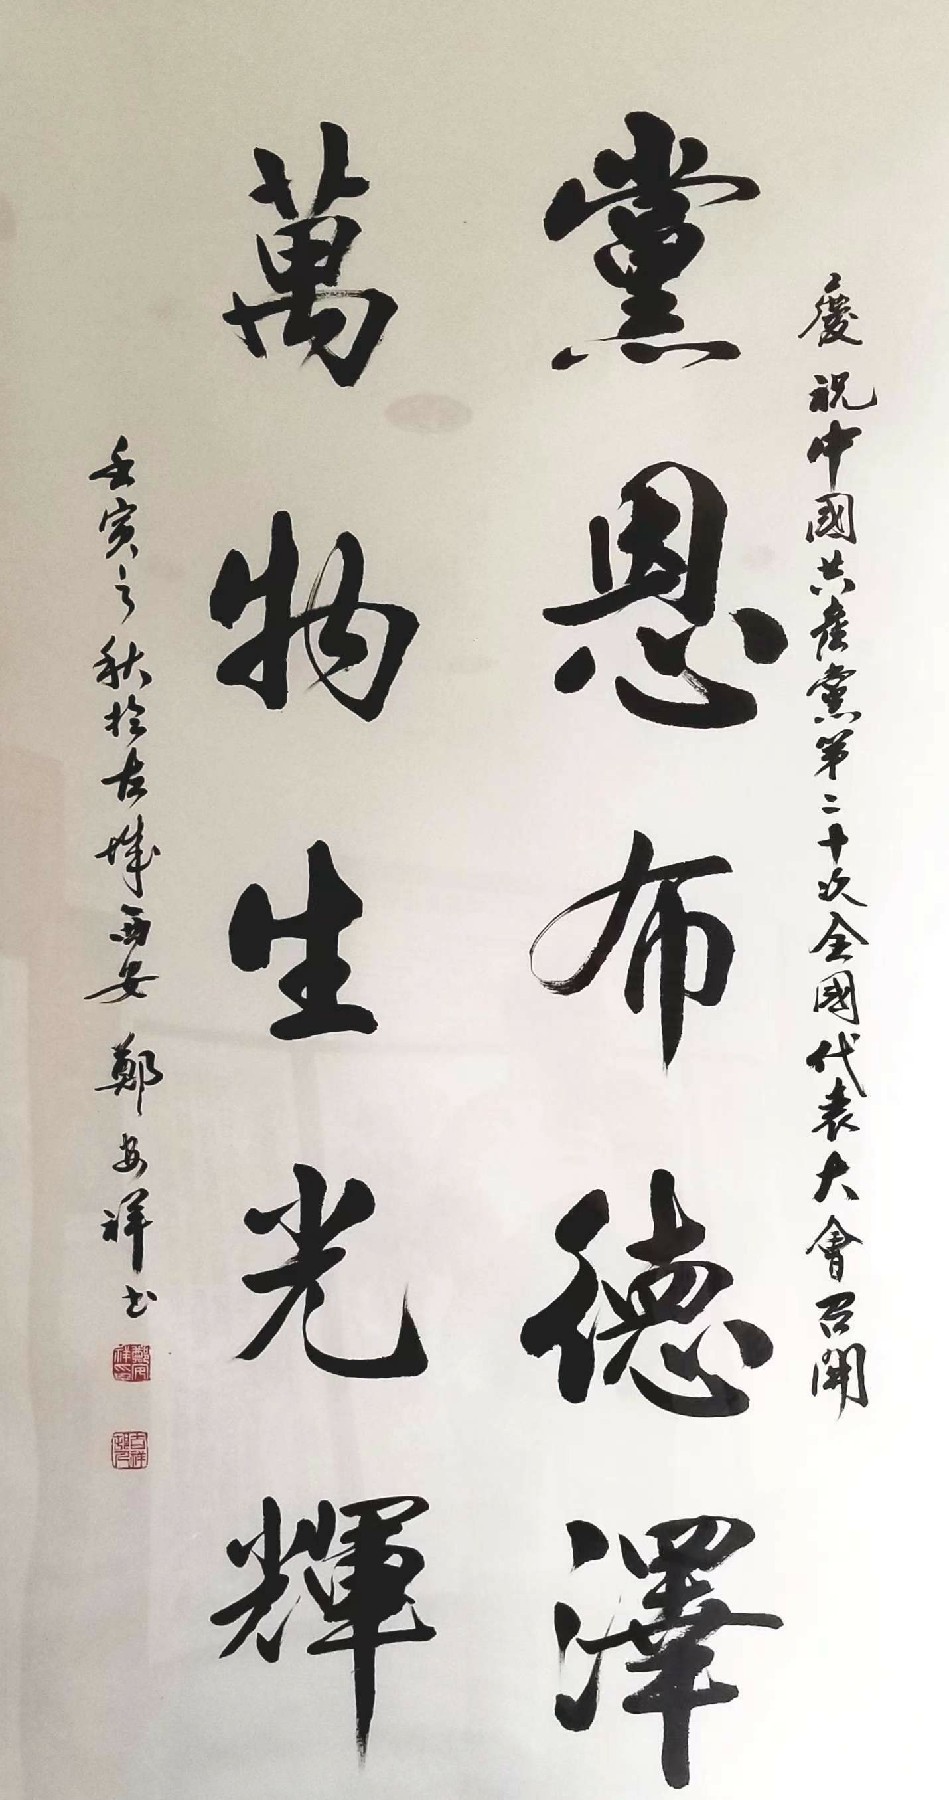 慶祝中國共產黨第二十次全國代表大會召開
黨恩布德澤
萬物生光輝
壬寅之秋於古城西安 鄭安祥书